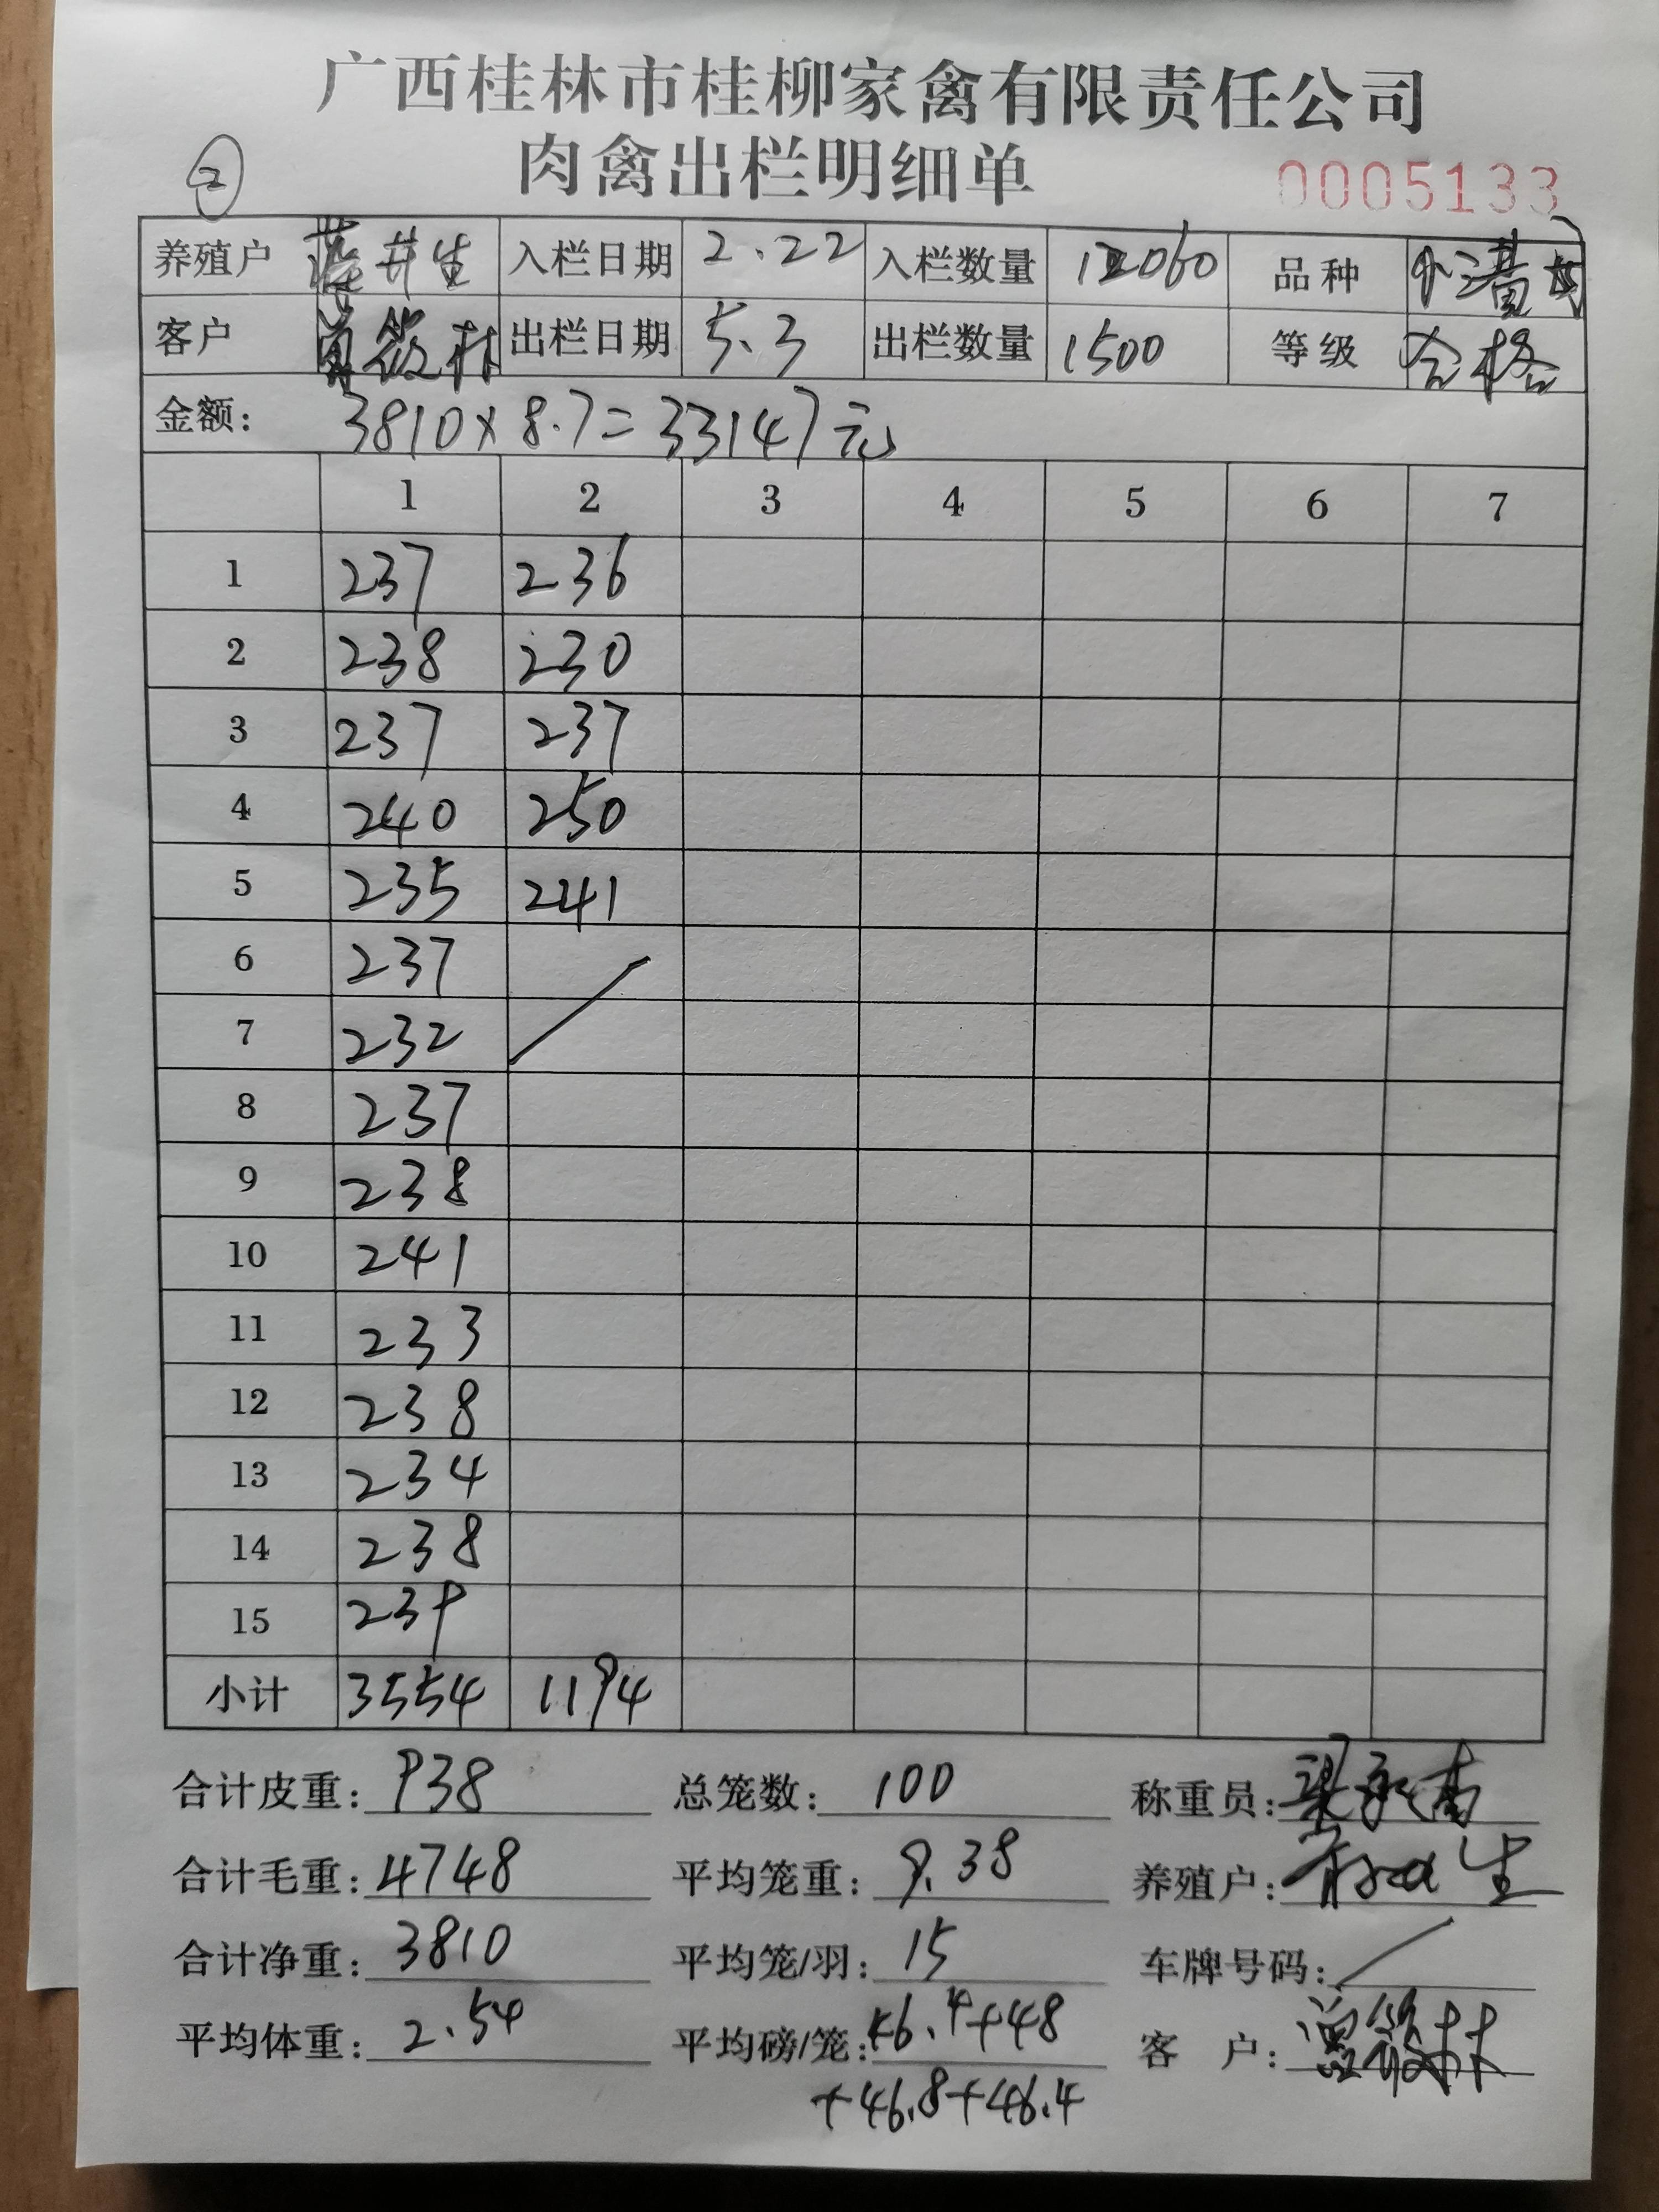 广西桂林市桂柳家禽有限责任公司
② 肉禽出栏明细单 0005133
养殖户 井生 入栏日期 2.22 入栏数量 12060 品种
客户 林 出栏日期 5.3 出栏数量 1500 等级 合格
金额: 3810×8.7=33147元
1 2 3 4 5 6 7
1 237 236
2 238 230
3 237 237
4 240 250
5 235 241
6 237
7 232
8 237
9 238
10 241
11 233
12 238
13 234
14 238
15 239
小计 3554 1194
合计皮重: 938 总笼数: 100 称重员:
合计毛重: 4748 平均笼重: 9.38 养殖户: 生
合计净重: 3810 平均笼/羽: 15 车牌号码: /
平均体重: 2.54 平均磅/笼: 46.4+48 客 户: 林
+46.8+46.4